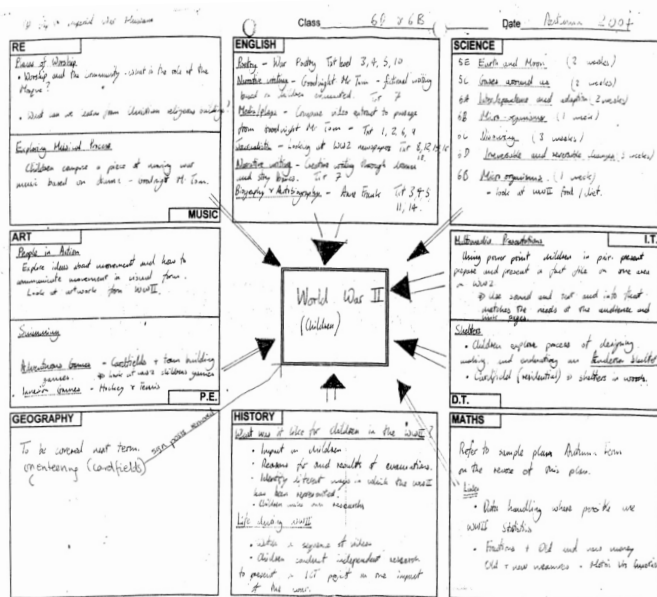 Class 6D & 6B
Date Autumn 2007
RE
Places of Worship
Worship and the community - what is the role of the Mosque?
we learn from Christian religious buildings?
Exploring Musical Process
Children compose a piece of moving
music based on Goodnight Mr Tom.
MUSIC
ENGLISH
Poetry - War Poetry Txt level 3, 4, 5, 10
Narrative writing - Goodnight Mr Tom - fictional writing
based on children evacuated. Txt 7
Media/plays - Compare video extract to passage
from goodnight Mr Tom - Txt 1, 2, 6, 9
Journalistic - Looking at WW2 newspapers
Narrative writing - Creative writing through drama
and story boxes. Txt 7
Biography & Autobiography - Anne Frank Txt 3, 4, 5
11, 14.
SCIENCE
5E Earth and Moon (2 weeks)
5C Gases around us (2 weeks)
6A Interdependence and adaption (2 weeks)
6B Micro organisms (1 week)
6C Dissolving (3 weeks)
6D Irreversible and reversible changes
6B Micro organisms (1 week)
- look at WWII food / diet.
ART
People in Action
Explore ideas about movement and how to
communicate movement in visual form.
Look at artwork from WWII.
Swimming
Adventurous Games - Cardfields & team building
games. Look at WW2 childrens games
Invasion Games - Hockey & Tennis
P.E.
World War II
(Children)
Multimedia Presentations
I.T.
Using power point children in pairs
prepare and present a fact file on one area
on WW2
Use sound and text and info that
matches the needs of the audience and
Shelters
Children explore process of designing
making and evaluating an Anderson Shelter
Cardfield (residential) shelters in woods.
D.T.
GEOGRAPHY
To be covered next term.
Orienteering (Cardfields)
HISTORY
What was it like for children in the WWII?
Impact on children.
Reasons for and results of evacuations.
Identify different ways in which the WWII
has been represented.
Children own research
Life during WWII
Watch a sequence of videos
Children conduct independent research
to present a ICT project on one impact
of the war.
MATHS
Refer to sample plans Autumn term
on the reverse of this plan.
Links
Data handling where possible use
WWII Statistics
Fractions & Old and new money
Old & new measures - Metric